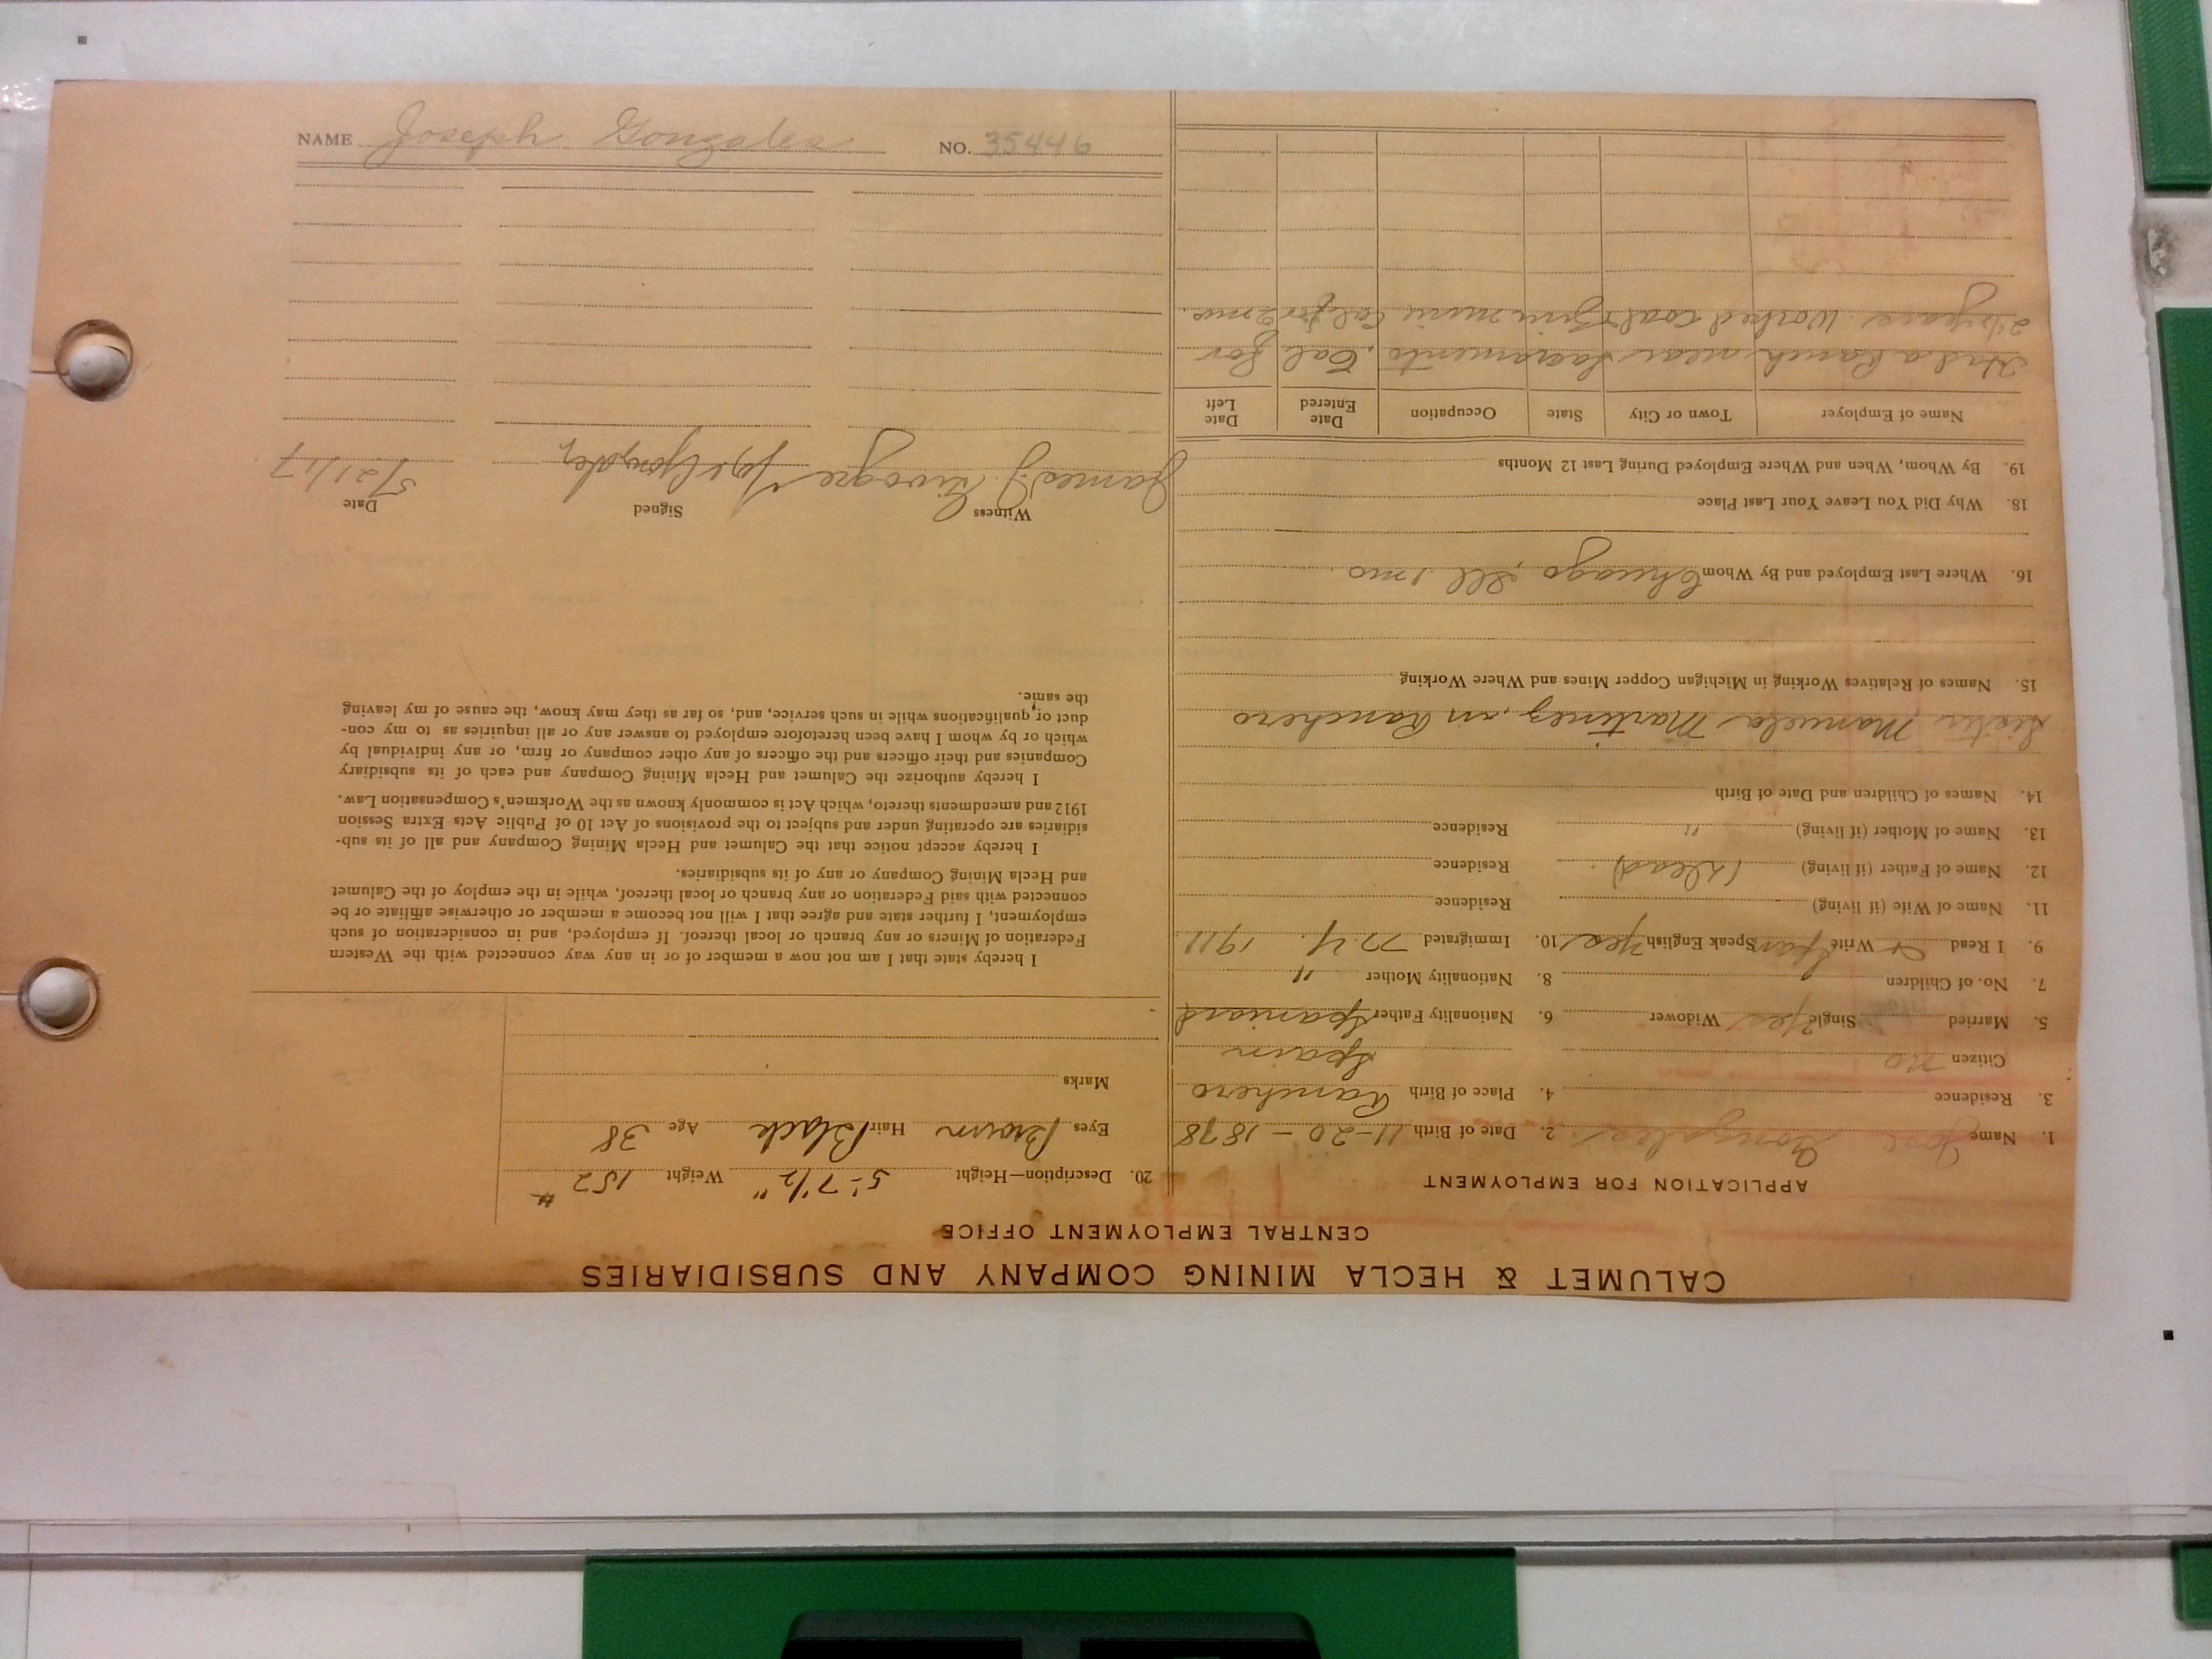 CALUMET & HECLA MINING COMPANY AND SUBSIDIARIES
CENTRAL EMPLOYMENT OFFICE
APPLICATION FOR EMPLOYMENT
1. Name Jose Gonzales 2. Date of Birth 11-20-1878
3. Residence 4. Place of Birth Ranchero
Citizen no Spain
5. Married Single Yes Widower 6. Nationality Father Spaniard
7. No. of Children 8. Nationality Mother "
9. I Read & Write Span Speak English Yes 10. Immigrated N.Y. 1911
11. Name of Wife (if living) Residence
12. Name of Father (if living) (Dead) Residence
13. Name of Mother (if living) " Residence
14. Names of Children and Date of Birth
Sister Manuela Martinez, in Ranchero
15. Names of Relatives Working in Michigan Copper Mines and Where Working
16. Where Last Employed and By Whom Chicago, Ill 1 mo.
18. Why Did You Leave Your Last Place
19. By Whom, When and Where Employed During Last 12 Months
Name of Employer Town or City State Occupation Date Entered Date Left
Had a Ranch near Sacramento, Cal for
2½ years. Worked Coal mine Calif for 2 mos.
20. Description—Height 5'-7½" Weight 152 #
Eyes Brown Hair Black Age 38
Marks
I hereby state that I am not now a member of or in any way connected with the Western
Federation of Miners or any branch or local thereof. If employed, and in consideration of such
employment, I further state and agree that I will not become a member or otherwise affiliate or be
connected with said Federation or any branch or local thereof, while in the employ of the Calumet
and Hecla Mining Company or any of its subsidiaries.
I hereby accept notice that the Calumet and Hecla Mining Company and all of its sub-
sidiaries are operating under and subject to the provisions of Act 10 of Public Acts Extra Session
1912 and amendments thereto, which Act is commonly known as the Workmen's Compensation Law.
I hereby authorize the Calumet and Hecla Mining Company and each of its subsidiary
Companies and their officers and the officers of any other company or firm, or any individual by
which or by whom I have been heretofore employed to answer any or all inquiries as to my con-
duct or qualifications while in such service, and, so far as they may know, the cause of my leaving
the same.
Witness Signed Date
James J. Jose Gonzalez 5/21/17
NAME Joseph Gonzales NO. 35446